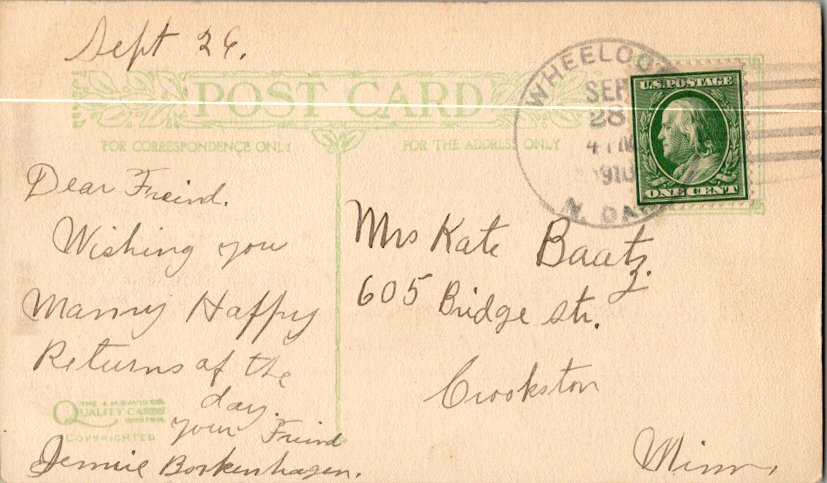 Sept 26.
POST CARD
FOR CORRESPONDENCE ONLY
FOR THE ADDRESS ONLY
WHEELOCK
SEP
28
4 PM
1910
N. DAK.
U.S. POSTAGE
ONE CENT
Dear Freind.
Wishing you
Manny Happy
Returns of the
day.
your Freind
Jennie Borkenhagen.
Mrs Kate Baatz.
605 Bridge Str.
Crookston
Minn,
THE A.M. DAVIS CO.
QUALITY CARDS
BOSTON
COPYRIGHTED